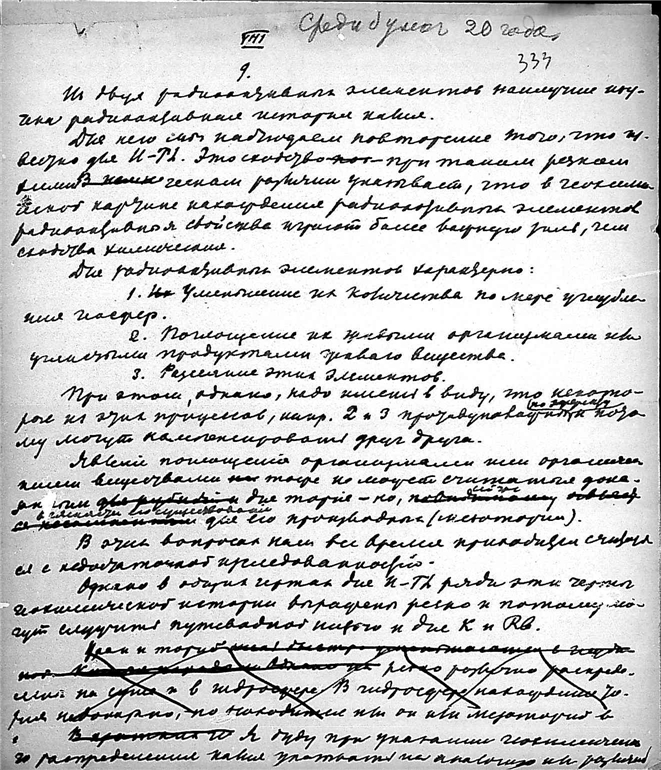 Среди бумаг 20 года.
VIII
333
9.
Из двух радиоактивных элементов наилучше изу-
чена радиоактивная история калия.
Для него мы наблюдаем повторение того, что из-
вестно для U-Th. Это сходство при таком резком
химическом различии указывает, что в геохими-
ческой картине нахождения радиоактивных элементов
радиоактивные свойства играют более важную роль, чем
свойства химические.
Для радиоактивных элементов характерно:
1. Уменьшение их количества по мере углубле-
ния геосфер.
2. Поглощение их живыми организмами или
углистыми продуктами живого вещества.
3. Рассеяние этих элементов.
При этом, однако, надо иметь в виду, что некото-
рые из этих процессов, напр. 2 и 3 и поэто-
му могут компенсировать друг друга.
Явление поглощения организмами или органичес-
кими веществами тоже не может считаться дока-
занным для тория - но,
для его производных (мезотория).
В этих вопросах нам все время приходится считать-
ся с недостаточной исследованностью.
Однако в общих чертах для U-Th ряда эти черты
геохимической истории выражены резко и потому мо-
гут служить путеводной нитью и для K и Rb.
Уран и торий
резко различно распреде-
лены на суше и в гидросфере. В гидросфере нахождение то-
рия но находится ли он или мезоторий в
Я буду при указании геохимическо-
го распределения калия указывать на аналогию или различие